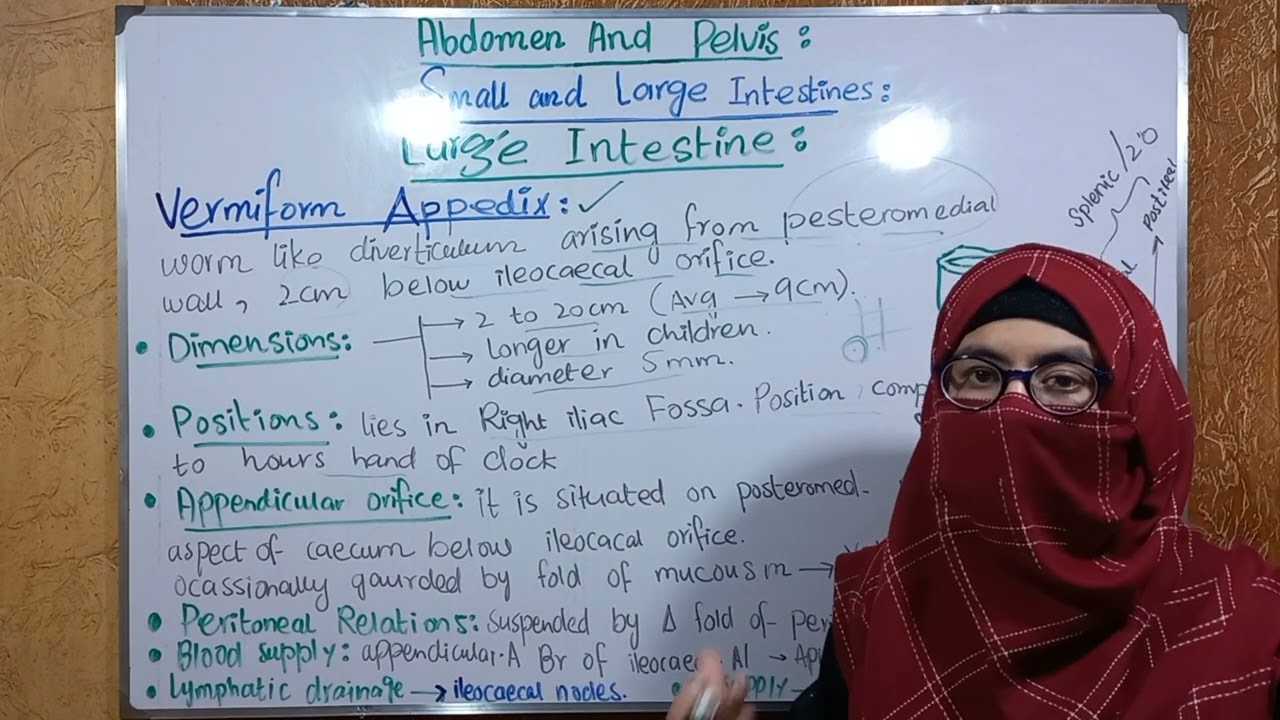 Abdomen And Pelvis:
Small and Large Intestines:
Large Intestine:
Vermiform Appedix: ✓
worm like diverticulum arising from pesteromedial
wall, 2cm below ileocaecal orifice.
• Dimensions: → 2 to 20cm (Avg → 9cm).
→ longer in children.
→ diameter 5mm.
• Positions: lies in Right iliac Fossa. Position comp
to hours hand of clock
• Appendicular orifice: it is situated on posteromed-
aspect of caecum below ileocacal orifice.
ocassionally gaurded by fold of mucous m →
• Peritoneal Relations: Suspended by Δ fold of per
• Blood supply: appendicular.A Br of ileocae Al → Ap
• Lymphatic drainage → ileocaecal nodes. pply
Splenic/20